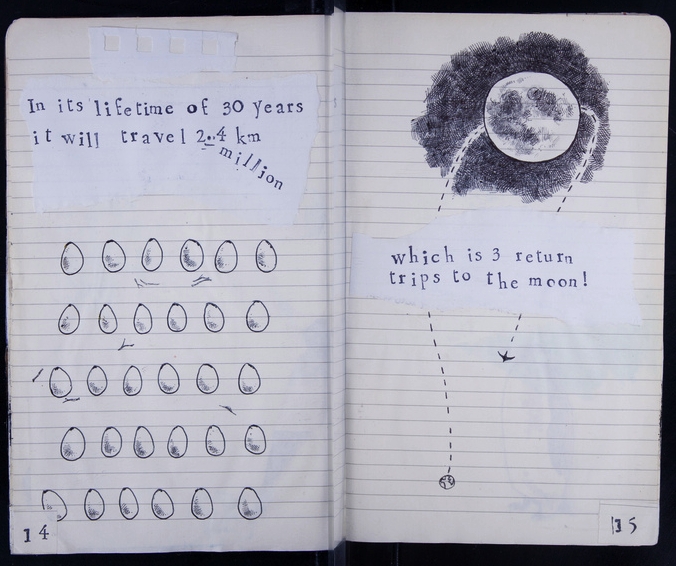 In its lifetime of 30 years
it will travel 2.4 km
million
14
which is 3 return
trips to the moon!
15